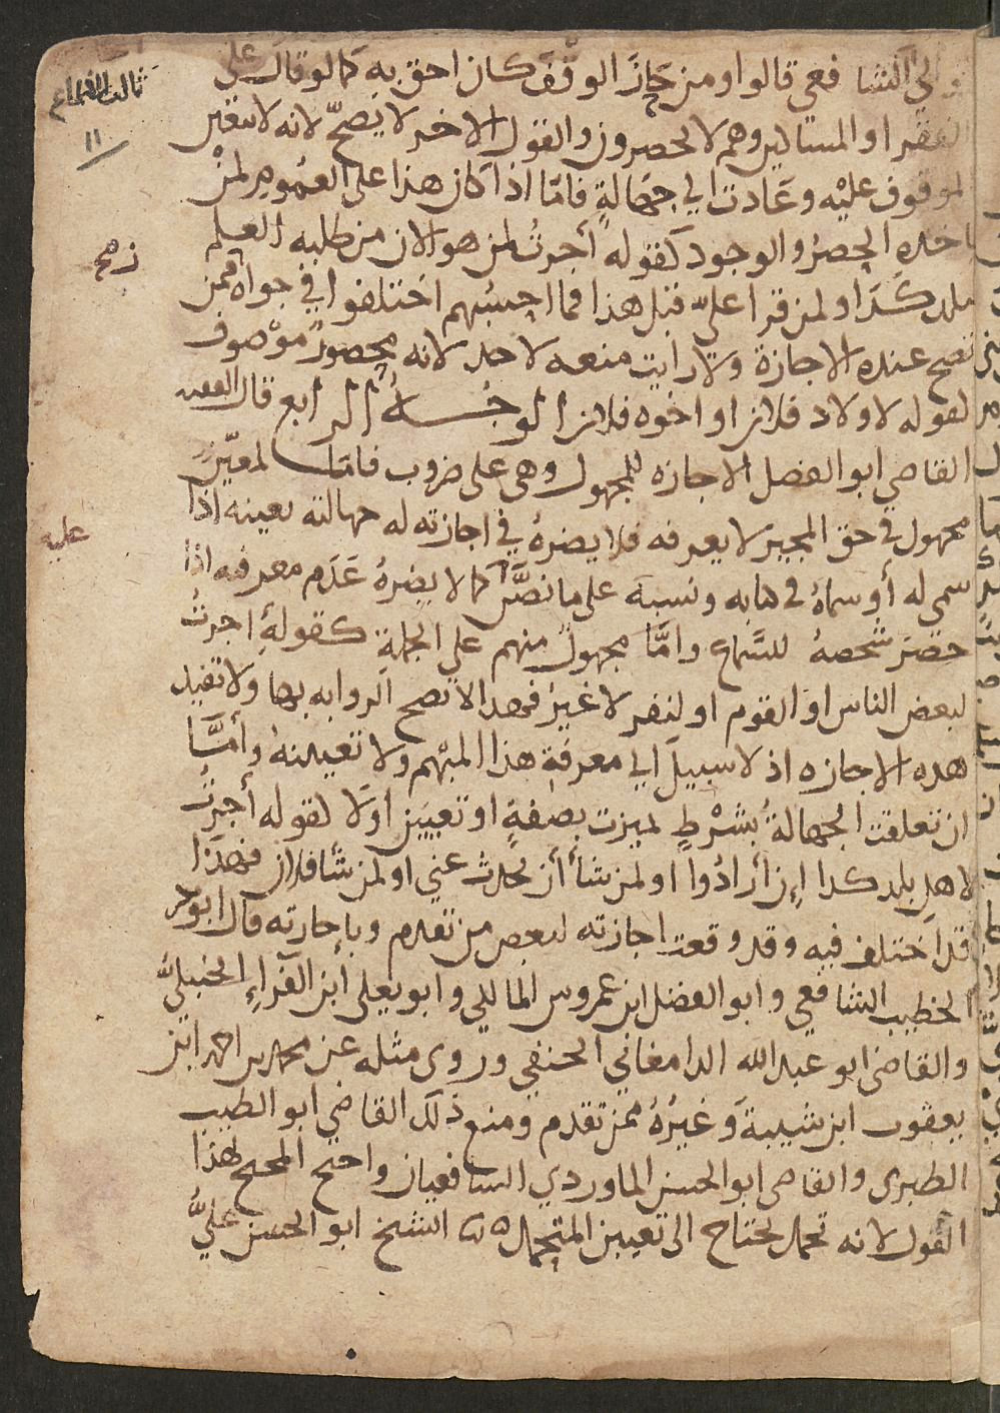 ثالث الالماع
١١
ولي الشافعي قالوا ومن حاز الوقف كان احق به كما لو قال على
الفقرا والمساكين وهم لا يحصرون والقول الاخر لا يصح لانه لا يتعين
الموقوف عليه وعادت الي جهالة فاما اذا كان هذا على العموم لمن
ياخذه الحصر والوجود كقوله أجرت لمن هو الان من طلبه العلم
ببلد كذا او لمن قرا علي قبل هذا فما احسبهم اختلفوا في جوازه ممن
تصح عنده الاجازة ولا رايت منعه لاحد لانه محصور موصوف
كقوله لاولاد فلان او اخوه فلان الوجه الرابع قال الفقيه
القاضي ابو الفضل الاجازه للمجهول وهي على ضروب فاما لمعين
مجهول في حق المجيز لا يعرفه فلا يضره في اجازته له جهالته بعينه اذا
عليه
سمي له أو سماه في كتابه ونسبه على ما نص كما لا يضره عدم معرفته اذا
حضر شخصه للسماع وامّا مجهول مبهم على الجملة كقوله اجرت
لبعض الناس او القوم او لنفر لا غير فهذا لا تصح الروايه بها ولا تفيد
هذه الاجازه اذ لا سبيل الي معرفة هذا المبهم ولا تعيينه وأمّا
ان تعلقت الجهالة بشرط تميزت بصفة او تعيين اولا كقوله أجرت
لاهل بلد كذا إن أرادوا او لمن شأ أن يحدث عني او لمن شأ فلان فهذا
قد اختلف فيه وقد وقعت اجازته لبعض من تقدم وباجازته قال ابو بكر
الخطيب الشافعي وابو الفضل ابن عمروس المالكي وابو يعلي ابن الفراء الحنبلي
والقاضي ابو عبد الله الدامغاني الحنفي وروي مثله عن محمد بن احمد ابن
يعقوب ابن شيبة وغيره ممن تقدم ومنع ذلك القاضي ابو الطيب
الطبري والقاضي ابو الحسن الماوردي الشافعيان واحتج المحتج لهذا
القول لانه تحمل يحتاج الى تعيين المتحمل الشيخ ابو الحسن علي